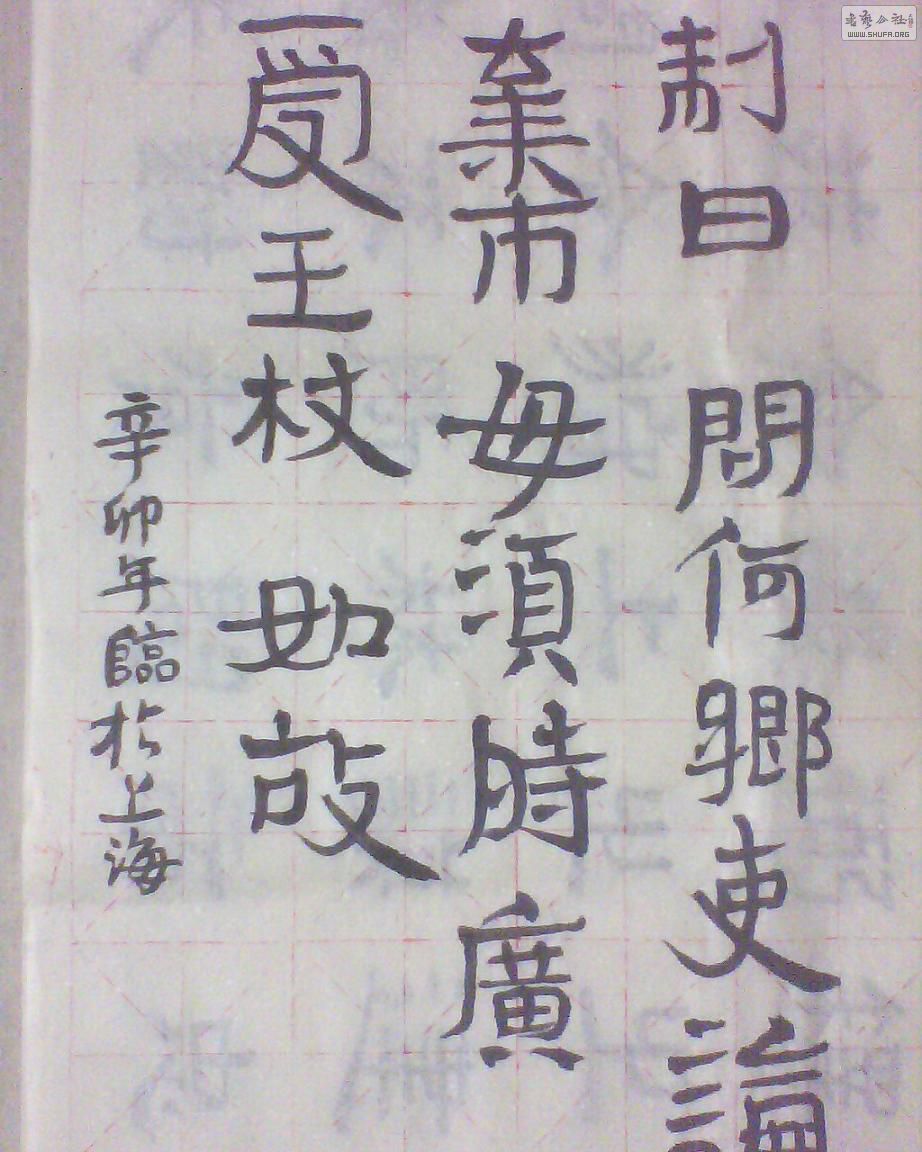 制曰問何鄉吏論
棄市毋須時廣
受王杖如故
辛卯年臨於上海
書藝公社
WWW.SHUFA.ORG